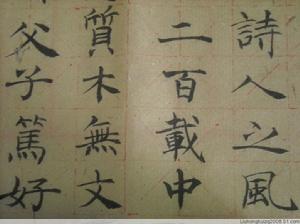 詩人之風
二百載中
質木無文
父子篤好
Liuhongliuzq2008.51.com